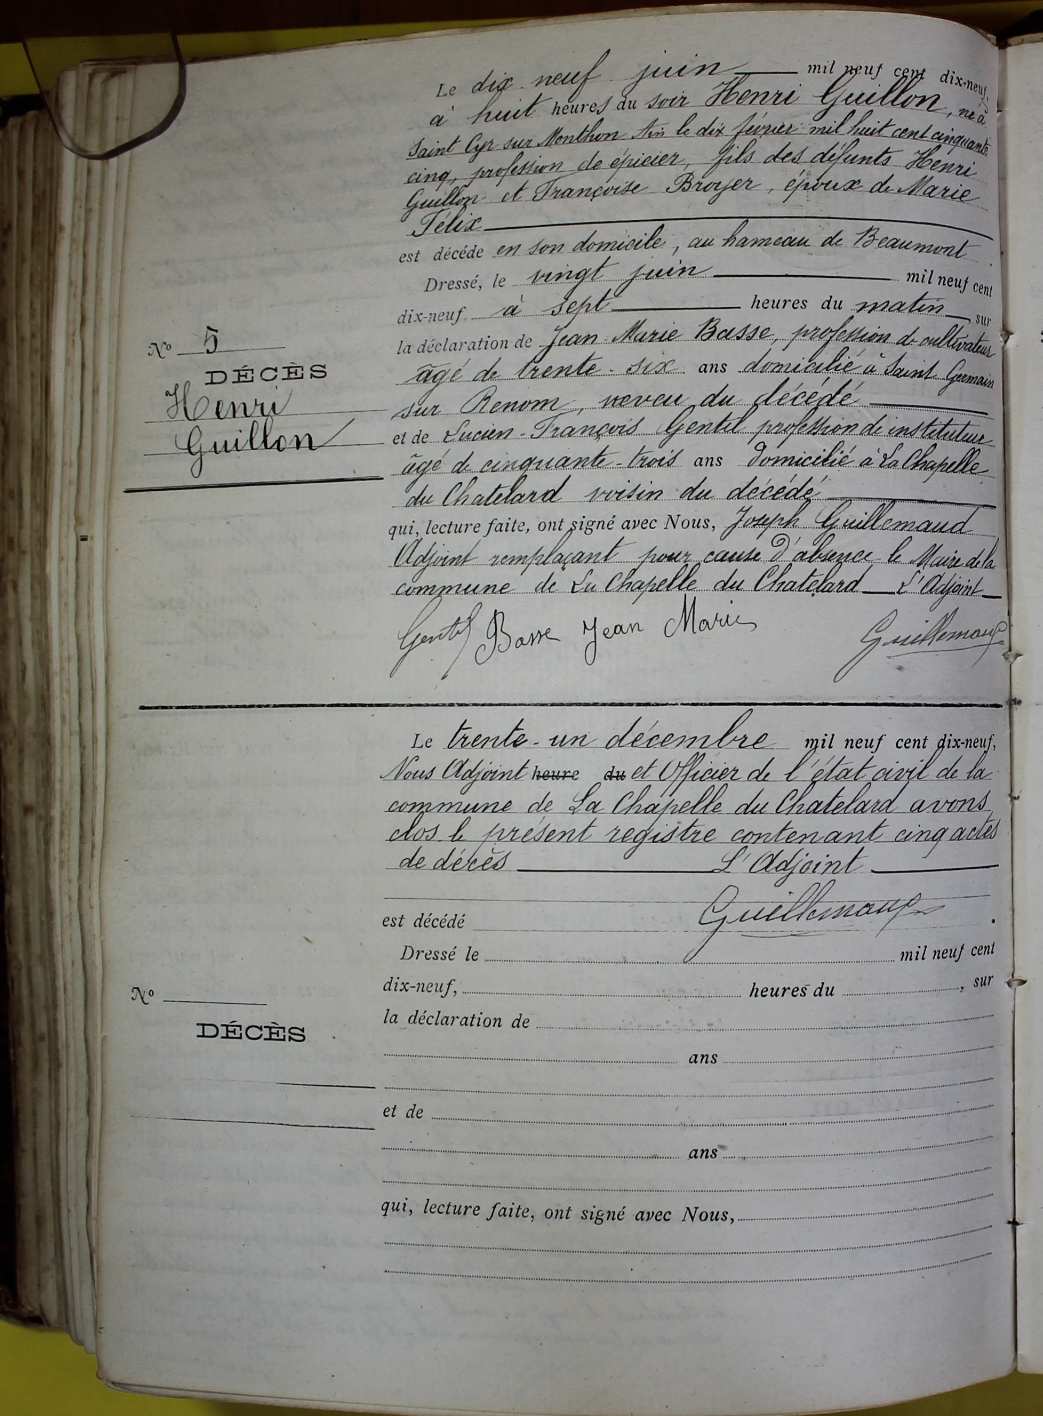 Le dix-neuf juin mil neuf cent dix-neuf,
à huit heures du soir Henri Guillon, né à
Saint Cyr sur Menthon Ain le dix février mil huit cent cinquante
cinq, profession de épicier, fils des défunts Henri
Guillon et Françoise Broyer, époux de Marie
Félix
est décédé en son domicile, au hameau de Beaumont
Dressé, le vingt juin mil neuf cent
dix-neuf à sept heures du matin, sur
la déclaration de Jean-Marie Basse, profession de cultivateur
âgé de trente-six ans domicilié à Saint Germain
sur Renom, neveu du décédé
et de Lucien-François Gentil profession de instituteur
âgé de cinquante-trois ans domicilié à La Chapelle
du Chatelard voisin du décédé
qui, lecture faite, ont signé avec Nous, Joseph Guillemaud
Adjoint remplaçant pour cause d'absence le Maire de la
commune de La Chapelle du Chatelard L'Adjoint
Gentil Basse Jean Marie Guillemaud
No 5
DÉCÈS
Henri
Guillon
Le trente-un décembre mil neuf cent dix-neuf,
Nous Adjoint heure du et Officier de l'état civil de la
commune de La Chapelle du Chatelard avons
clos le présent registre contenant cinq actes
de décès L'Adjoint
Guillemaud
est décédé
Dressé le mil neuf cent
dix-neuf, heures du , sur
la déclaration de
ans
et de
ans
qui, lecture faite, ont signé avec Nous,
No
DÉCÈS